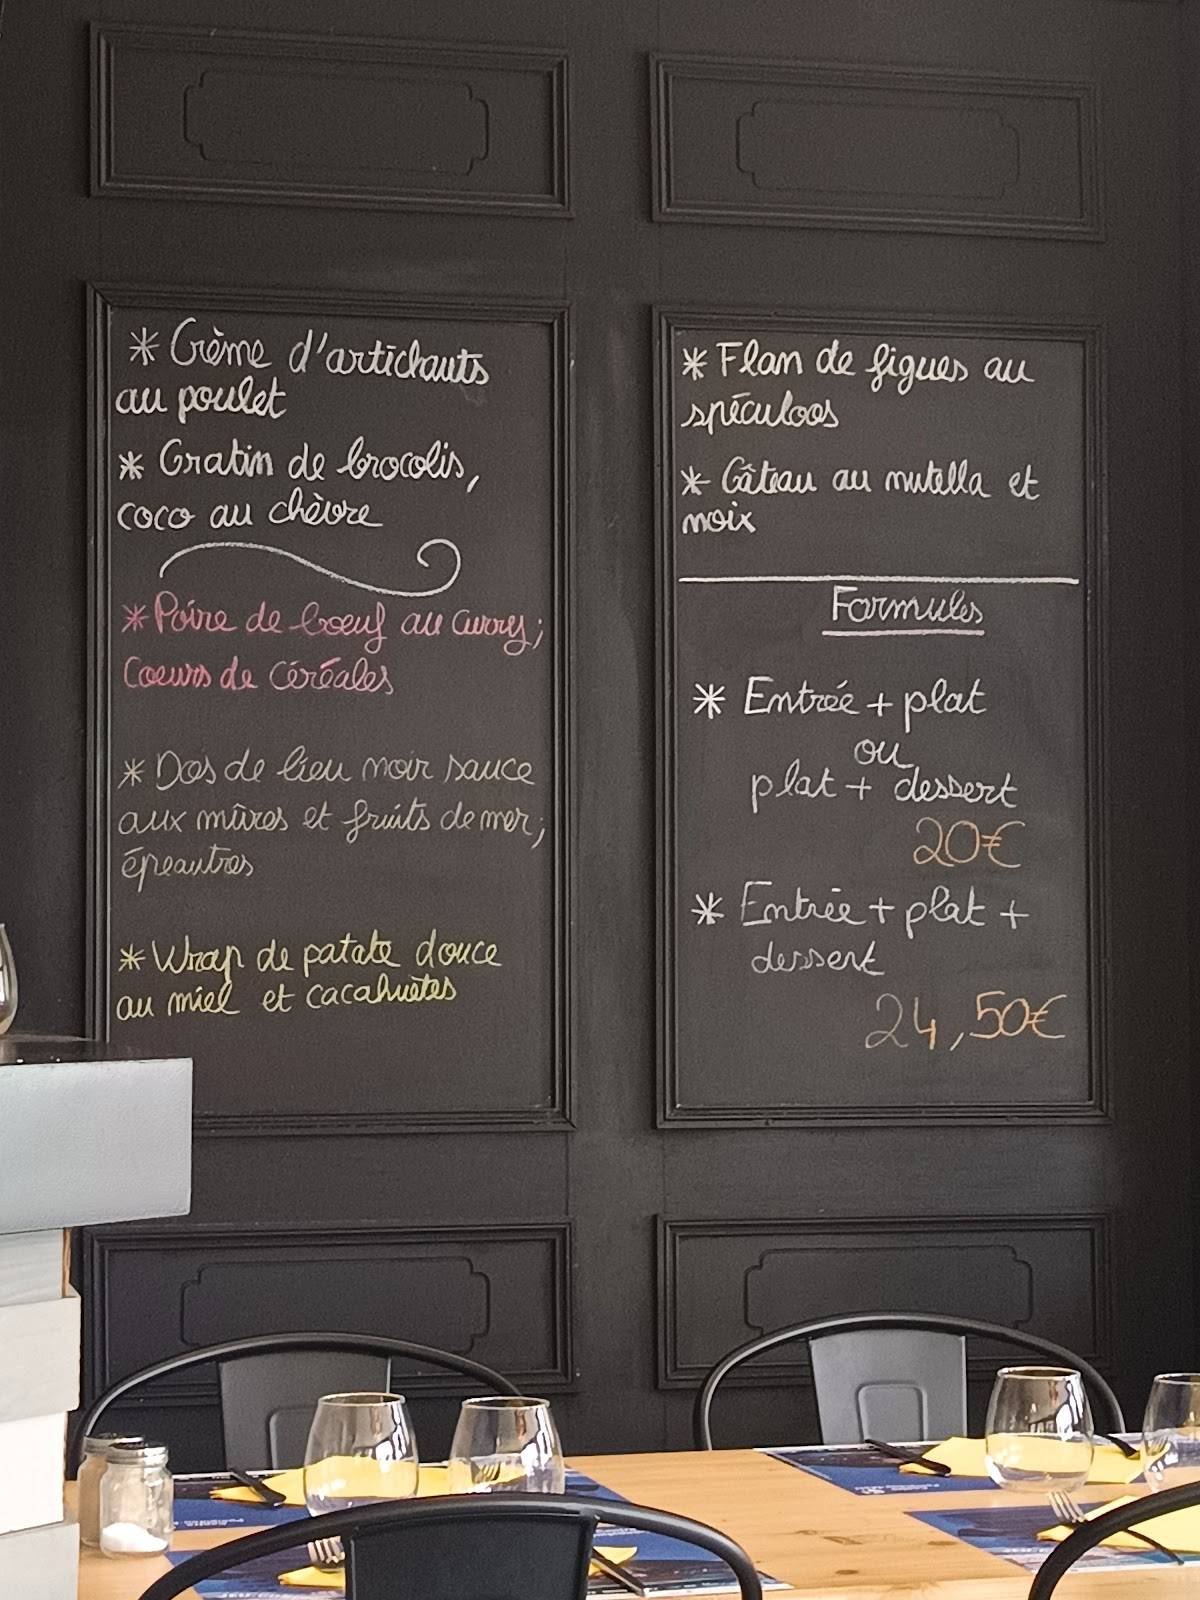 * Crème d'artichauts
au poulet
* Gratin de brocolis,
coco au chèvre
* Poire de boeuf au curry;
Coeurs de céréales
* Dos de lieu noir sauce
aux mûres et fruits de mer;
épeautres
* Wrap de patate douce
au miel et cacahuètes
* Flan de figues au
spéculoos
* Gâteau au nutella et
noix
Formules
* Entrée + plat
ou
plat + dessert
20€
* Entrée + plat +
dessert
24,50€